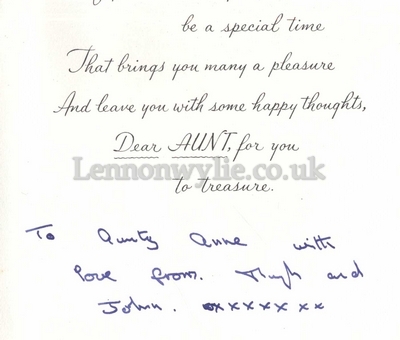 be a special time
That brings you many a pleasure
And leave you with some happy thoughts,
Dear AUNT, for you
Lennonwylie.co.uk
to treasure.
To Aunty Anne with
love from. Hugh and
John. xxxxxxxx